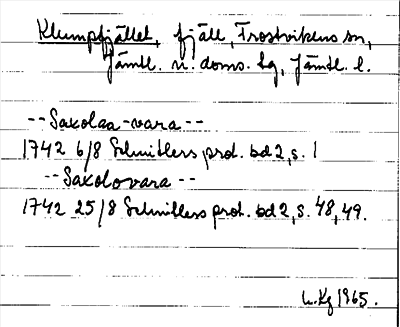 Klumpfjället, fjäll, Frostvikens sn,
Jämtl. n. doms. hg, Jämtl. l.
--Saxolaa-vara--
1742 6/8 Schnitlers prot. bd 2, s. 1
--Saxolovara--
1742 25/8 Schnitlers prot. bd 2, s. 48, 49.
1965.